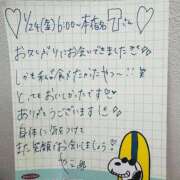 1/24(金)6:00~本指名
お久しぶりにお会いできました
しかも私が食べたかったやつ〜!!
とってもおいしい
ありがとうございます!
身体に気をつけて
また笑顔でお会いしましょう